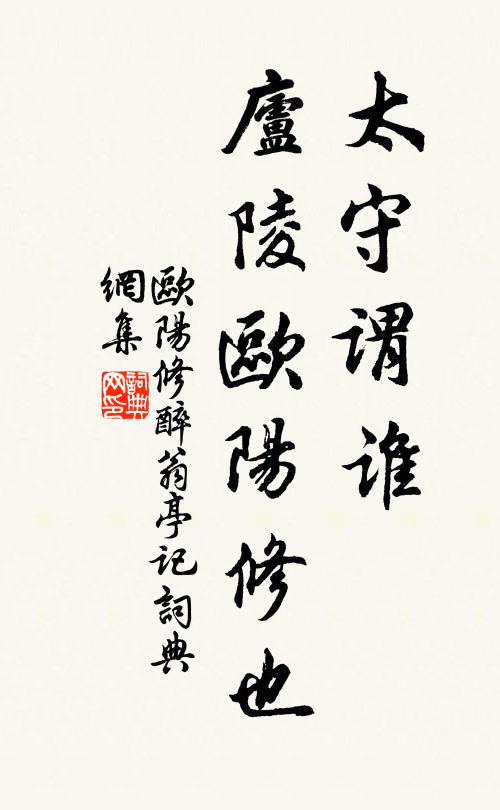 太守謂誰
廬陵歐陽修也
歐陽修醉翁亭記詞典
網集
詞典
网印